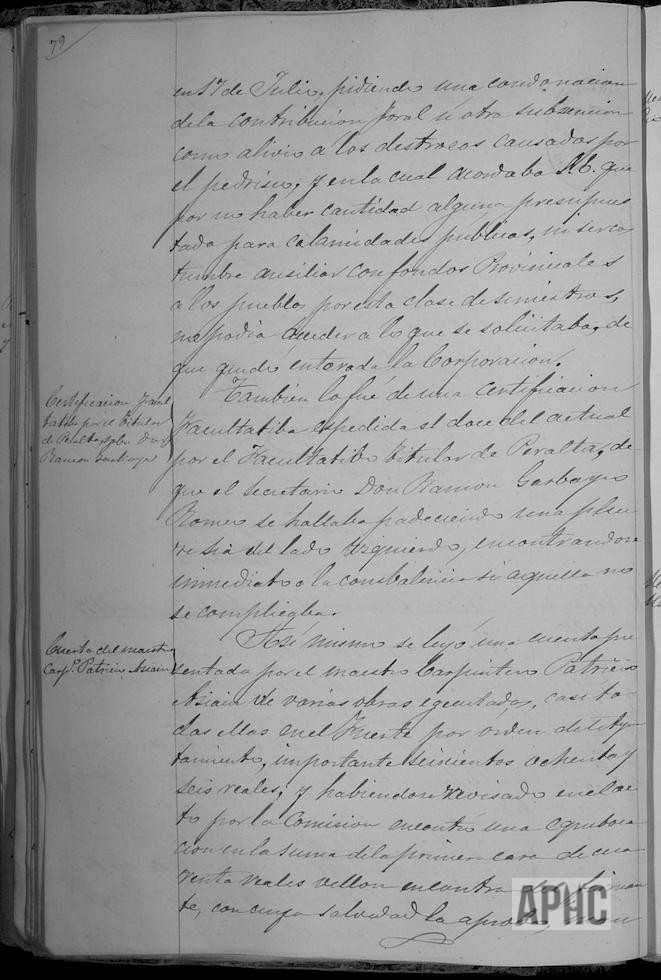 79
en 17 de Julio, pidiendo una condonacion
dela contribucion foral ú otra subencion
como alivio a los destrozos causados por
el pedrisco, y en la cual acordaba S.E. que
por no haber cantidad alguna presupues
tada para calamidades públicas, ni ser cos
tumbre ausiliar con fondos Provinciales
a los pueblos por esta clase de siniestros,
no podia acceder a lo que se solicitaba, de
que quedó enterada la Corporacion.
Certificacion Facul
tatiba por el titular
de Peralta sobre Don
Ramon Garbayo
Tambien lo fué de una certificacion
Facultatiba espedida el doce del actual
por el Facultatibo titular de Peralta, de
que el secretario Don Ramon Garbayo
Romeo se hallaba padeciendo una pleu
resia del lado izquierdo, encontrandose
inmediato a la conbalencia si aquella no
se complicaba.
Cuenta del maestro
Carp.º Patricio Asiain
Asi mismo se leyó una cuenta pre
sentada por el maestro Carpintero Patricio
Asiain de varias obras egecutadas, casi to
das ellas en el Fuerte por orden de este Ayun
tamiento, importante seiscientos ochenta y
seis reales; y habiendose revisado en el ac
to por la Comision encontró una equiboca
cion en la suma dela primera cara de cua
renta reales vellon en contra
te, con cuya salvedad la aprobó,
APHC